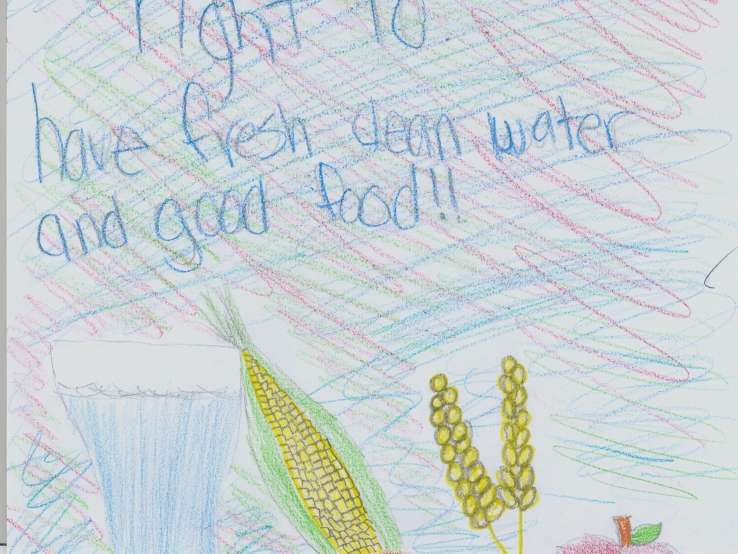 right to
have fresh clean water
and good food!!